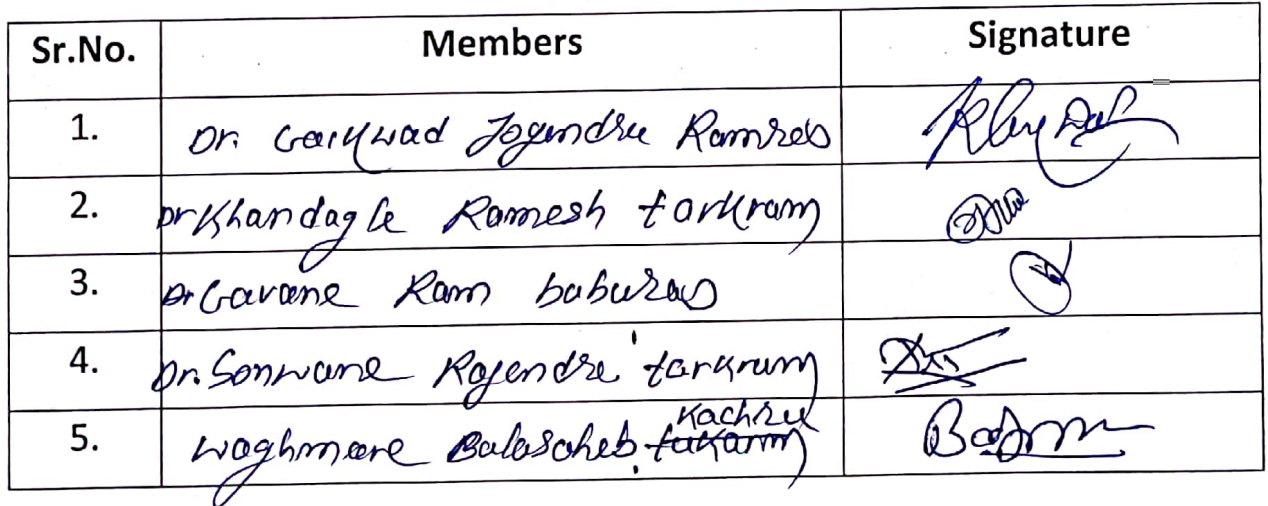 Sr.No. Members Signature
1. Dr. Gaikwad Jogendra Ramrao
2. Dr Khandagle Ramesh tarkram
3. Dr Gavane Ram baburao
4. Dr. Sonwane Rajendra tarkram
Kachru
5. Waghmare Balasaheb tukarm